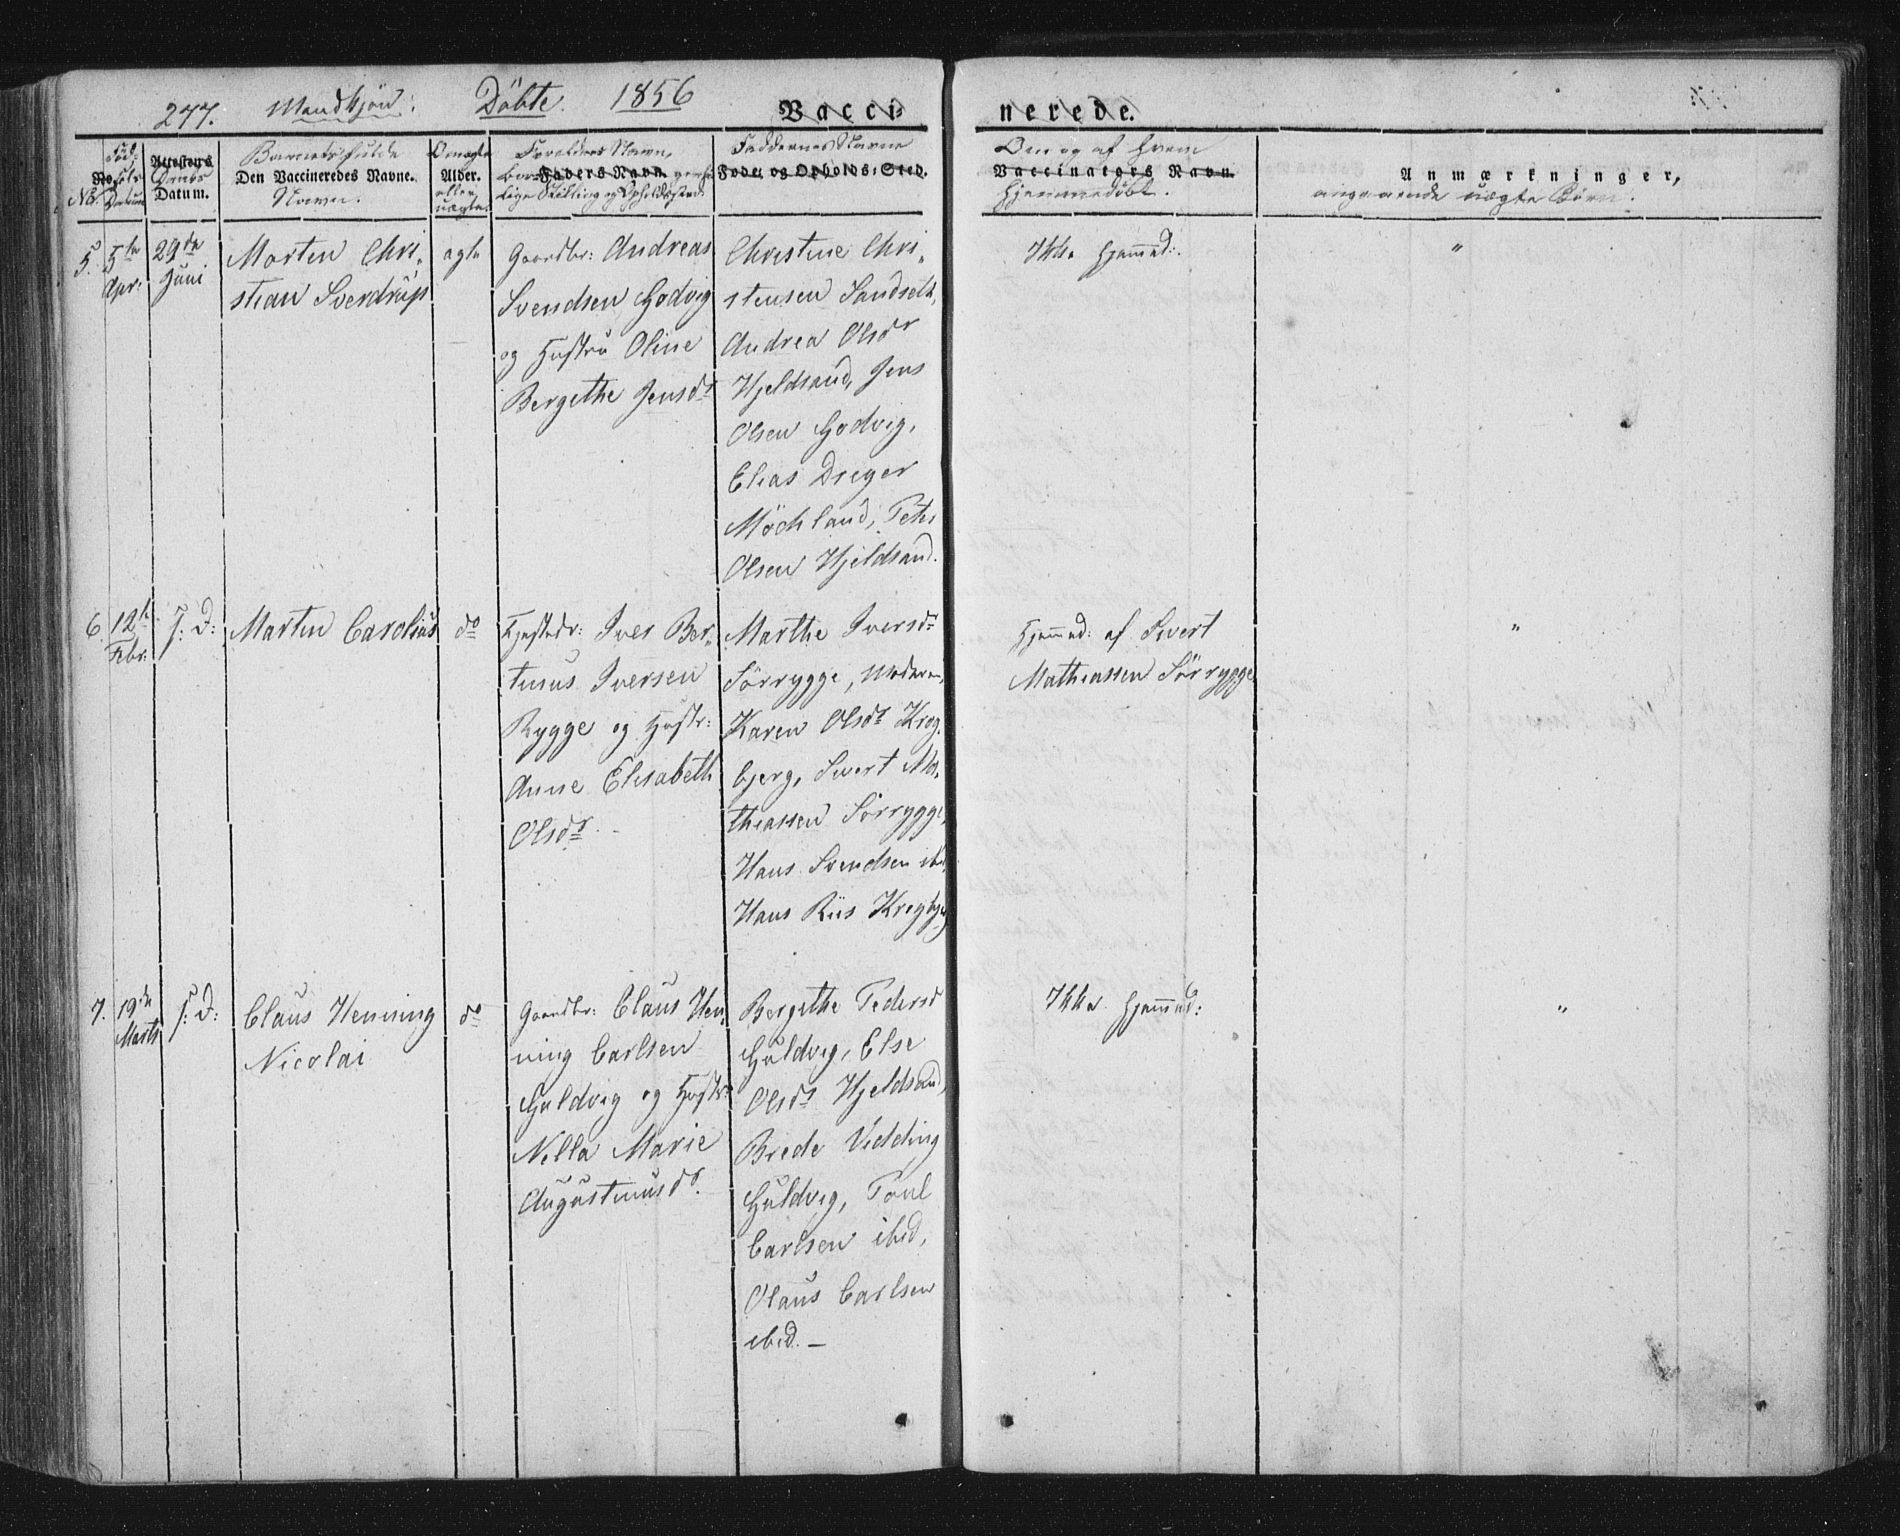 277. Mandkjön: Döbte. 1856 Vacci-nerede.
No. Föd- Datum Attestens Daabs Datum.
Barnets fulde
Den Vaccineredes Navne.
Navn.
Om ægte
Alder.
eller
uægte.
Forældres Navn,
Faders Navn
Stilling og Opholdssted.
Faddernes Navne
Føde- og Opholds-Sted.
Om og af hvem
Vaccinators Navn.
hjemmedöbt.
Anmærkninger,
angaaende uægte Börn.
5. 5te Apr: 29de Juni
Morten Chri-
stian Sverdrup
ægte
Gaardbr: Andreas
Svendsen Godvig
og Hustru Oline
Bergethe Jensdr
Christine Chri-
stensen Sandseth,
Andrea Olsdr
Hjeldsand, Jens
Olsen Godvig,
Elias Dreyer
Möchland, Peter
Olsen Hjeldsand.
Ikke hjemmed:
"
6 12te Febr: s: D:
Martin Carolius
do
Iver Ber-
tinus Iversen
Rygge og Hustr:
Anne Elisabeth
Olsdr.
Marthe Iversdr
Sörrygge, Moderen,
Karen Olsdr Krog-
bjerg, Sivert Ma-
thiassen Sörrygge,
Hans Svendsen ibd,
Hans Riis Krogbjerg
Hjemmed: af Sivert
Mathiassen Sörrygge
"
7. 19de Marts s: D:
Claus Henning
Nicolai
do
Gaardbr: Claus Hen-
ning Carlsen
Guldvig og Hustr:
Nella Marie
Augustinusdr.
Bergithe Pedersd
Guldvig, Else
Olsdr Hjeldsand,
Brede Vedding
Guldvig, Poul
Carlsen ibid,
Olaus Carlsen
ibid. —
Ikke hjemmed:
"